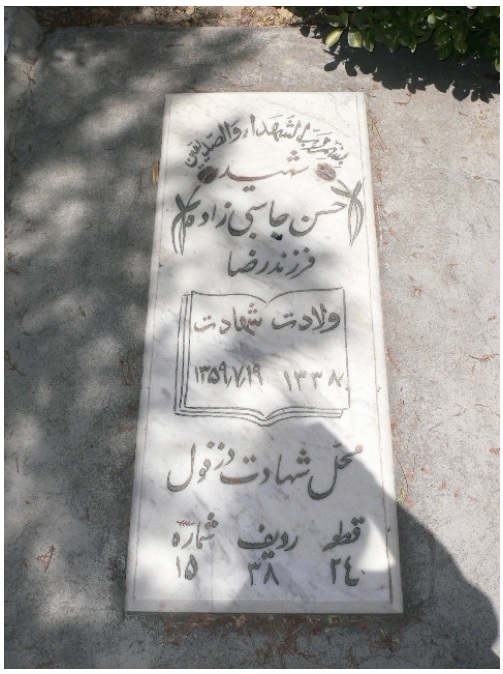 بسم رب الشهداء والصدیقین
شهید
حسن جاسبی زاده
فرزند رضا
ولادت شهادت
۱۳۳۸ ۱۳۵۹٫۷٫۱۹
محل شهادت دزفول
قطعه ردیف شماره
۲٤ ۳۸ ۱۵